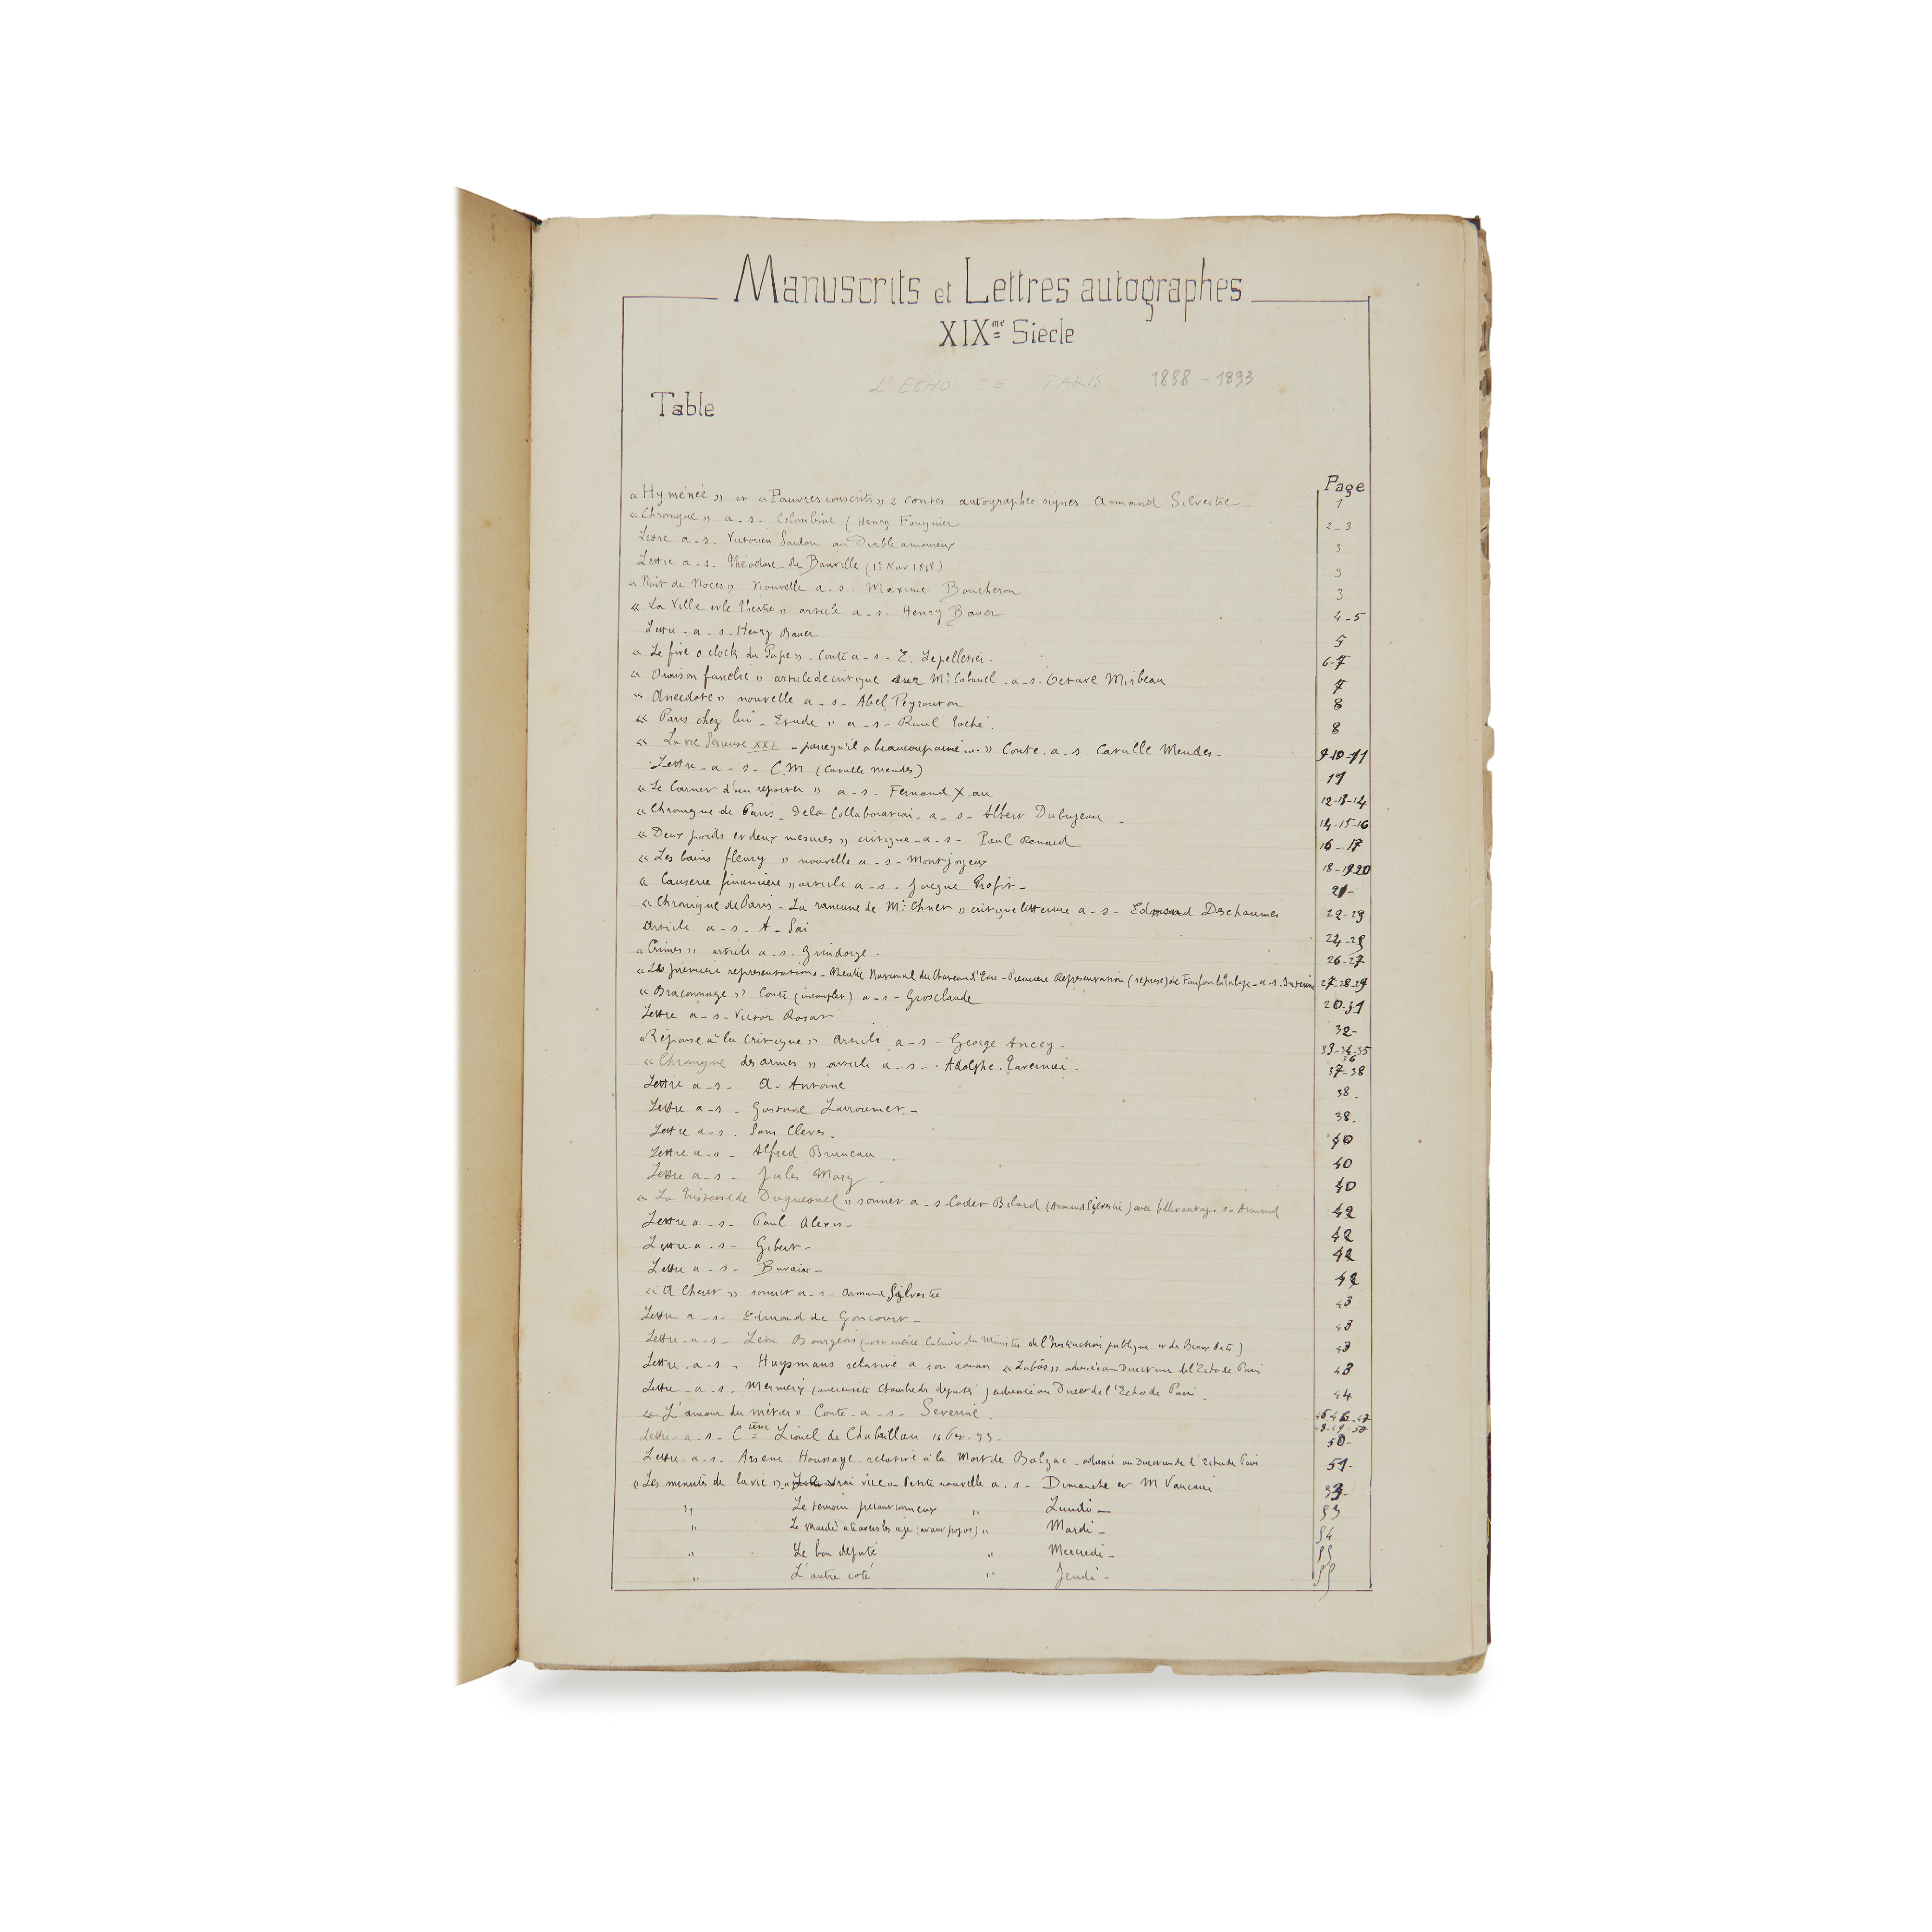 Manuscrits et Lettres autographes
XIXme Siècle
L'ECHO DE PARIS 1888 - 1893
Table
Page
« Hyménée » et « Pauvres conscrits » 2 contes autographes signés Armand Silvestre - 1
« Chronique » a - s - Colombine (Henry Fouquier 2-3
Lettre a - s - Victorien Sardou au Diable amoureux 3
Lettre a - s - Théodore de Banville 3
« Nuit de Noces » Nouvelle a - s - Maxime Boucheron 3
« La Ville et le Théâtre » article a - s - Henry Bauer 4-5
Lettre - a - s - Henry Bauer 5
« Le five o clock du Pape » - Conte a - s - E. Lepelletier - 6-7
« Oraison funèbre » article de critique sur Mr Cabanel - a - s - Octave Mirbeau 7
« Anecdote » nouvelle a - s - Abel Peyrouton 8
« Paris chez lui - Etude » a - s - Raoul 8
« La vie sérieuse XXI - parcequ'il a beaucoup aimé .... » Conte - a - s - Catulle Mendes - 9-10-11
Lettre - a - s - C.M (Catulle Mendes) 11
« Le Carnet d'un reporter » a - s - Fernand Xau 12-13-14
« Chronique de Paris - De la Collaboration - a - s - Albert Dubrujeau - 14-15-16
« Deux poids et deux mesures » critique - a - s - Paul Renard 16-17
« Les bains fleury » nouvelle a - s - Montjoyeux 18-19-20
« Causerie financière » article a - s - Jacque Profit - 21-
« Chronique de Paris - La rancune de Mr Ohnet » critique littéraire a - s - Edmond Deschaumes 22-23
Article a - s - A - 24-25
« Crimes » article a - s - Grindorge - 26-27
« Les premières représentations - Théâtre National du Chateau d'Eau - Première Représentation (reprise) de Fanfan la Tulipe - a - s - Intérim 27-28-29
« Braconnage » Conte (incomplet) a - s - Grosclaude 20-31
Lettre a - s - Victor 32-
« Réponse à la Critique » Article a - s - George Ancey - 33-34-35
36
« Chronique des armes » article a - s - Adolphe - Tavernier - 37-38
Lettre a - s - A - Antoine 38 -
Lettre a - s - Gustave Larroumet - 38 -
Lettre a - s - 40
Lettre a - s - Alfred Bruneau - 40
Lettre a - s - Jules Mary - 40
« La Tristesse de Duquesnel » sonnet a - s - Cadet Bitard (Armand Silvestre) avec billet autog - s - Armand 42
Lettre a - s - Paul Alexis - 42
Lettre - a - s - Gibert - 42
Lettre a - s - 42
« A Cheret » sonnet a - s - Armand Silvestre 43
Lettre a - s - Edmond de Goncourt - 43
Lettre - a - s - Léon Bourgeois Cabinet du Ministre de l'Instruction publique et des Beaux Arts) 43
Lettre - a - s - Huysmans relative à son roman « Labas » adressée au Directeur de l'Echo de Paris 43
Lettre - a - s - Mermeix Chambre des députés) adressé au Directr de l'Echo de Paris - 44
« L'amour du métier » Conte - a - s - Severine - 45-46-47
48-49-50
Lettre - a - s - Lionel de Chabrillan 50-
Lettre - a - s - Arsene Houssaye - relative à la Mort de Balzac - adressé au Directeur de l'Echo de Paris 51-
« Les minutes de la vie » vrai vice - Petite nouvelle a - s - Dimanche et M Vaucaire 53-
" Le témoin " Lundi - 53
" Le Mardi à travers les âges (avant propos) " Mardi - 54
" Le bon député " Mercredi - 55
" L'autre coté " Jeudi - 55